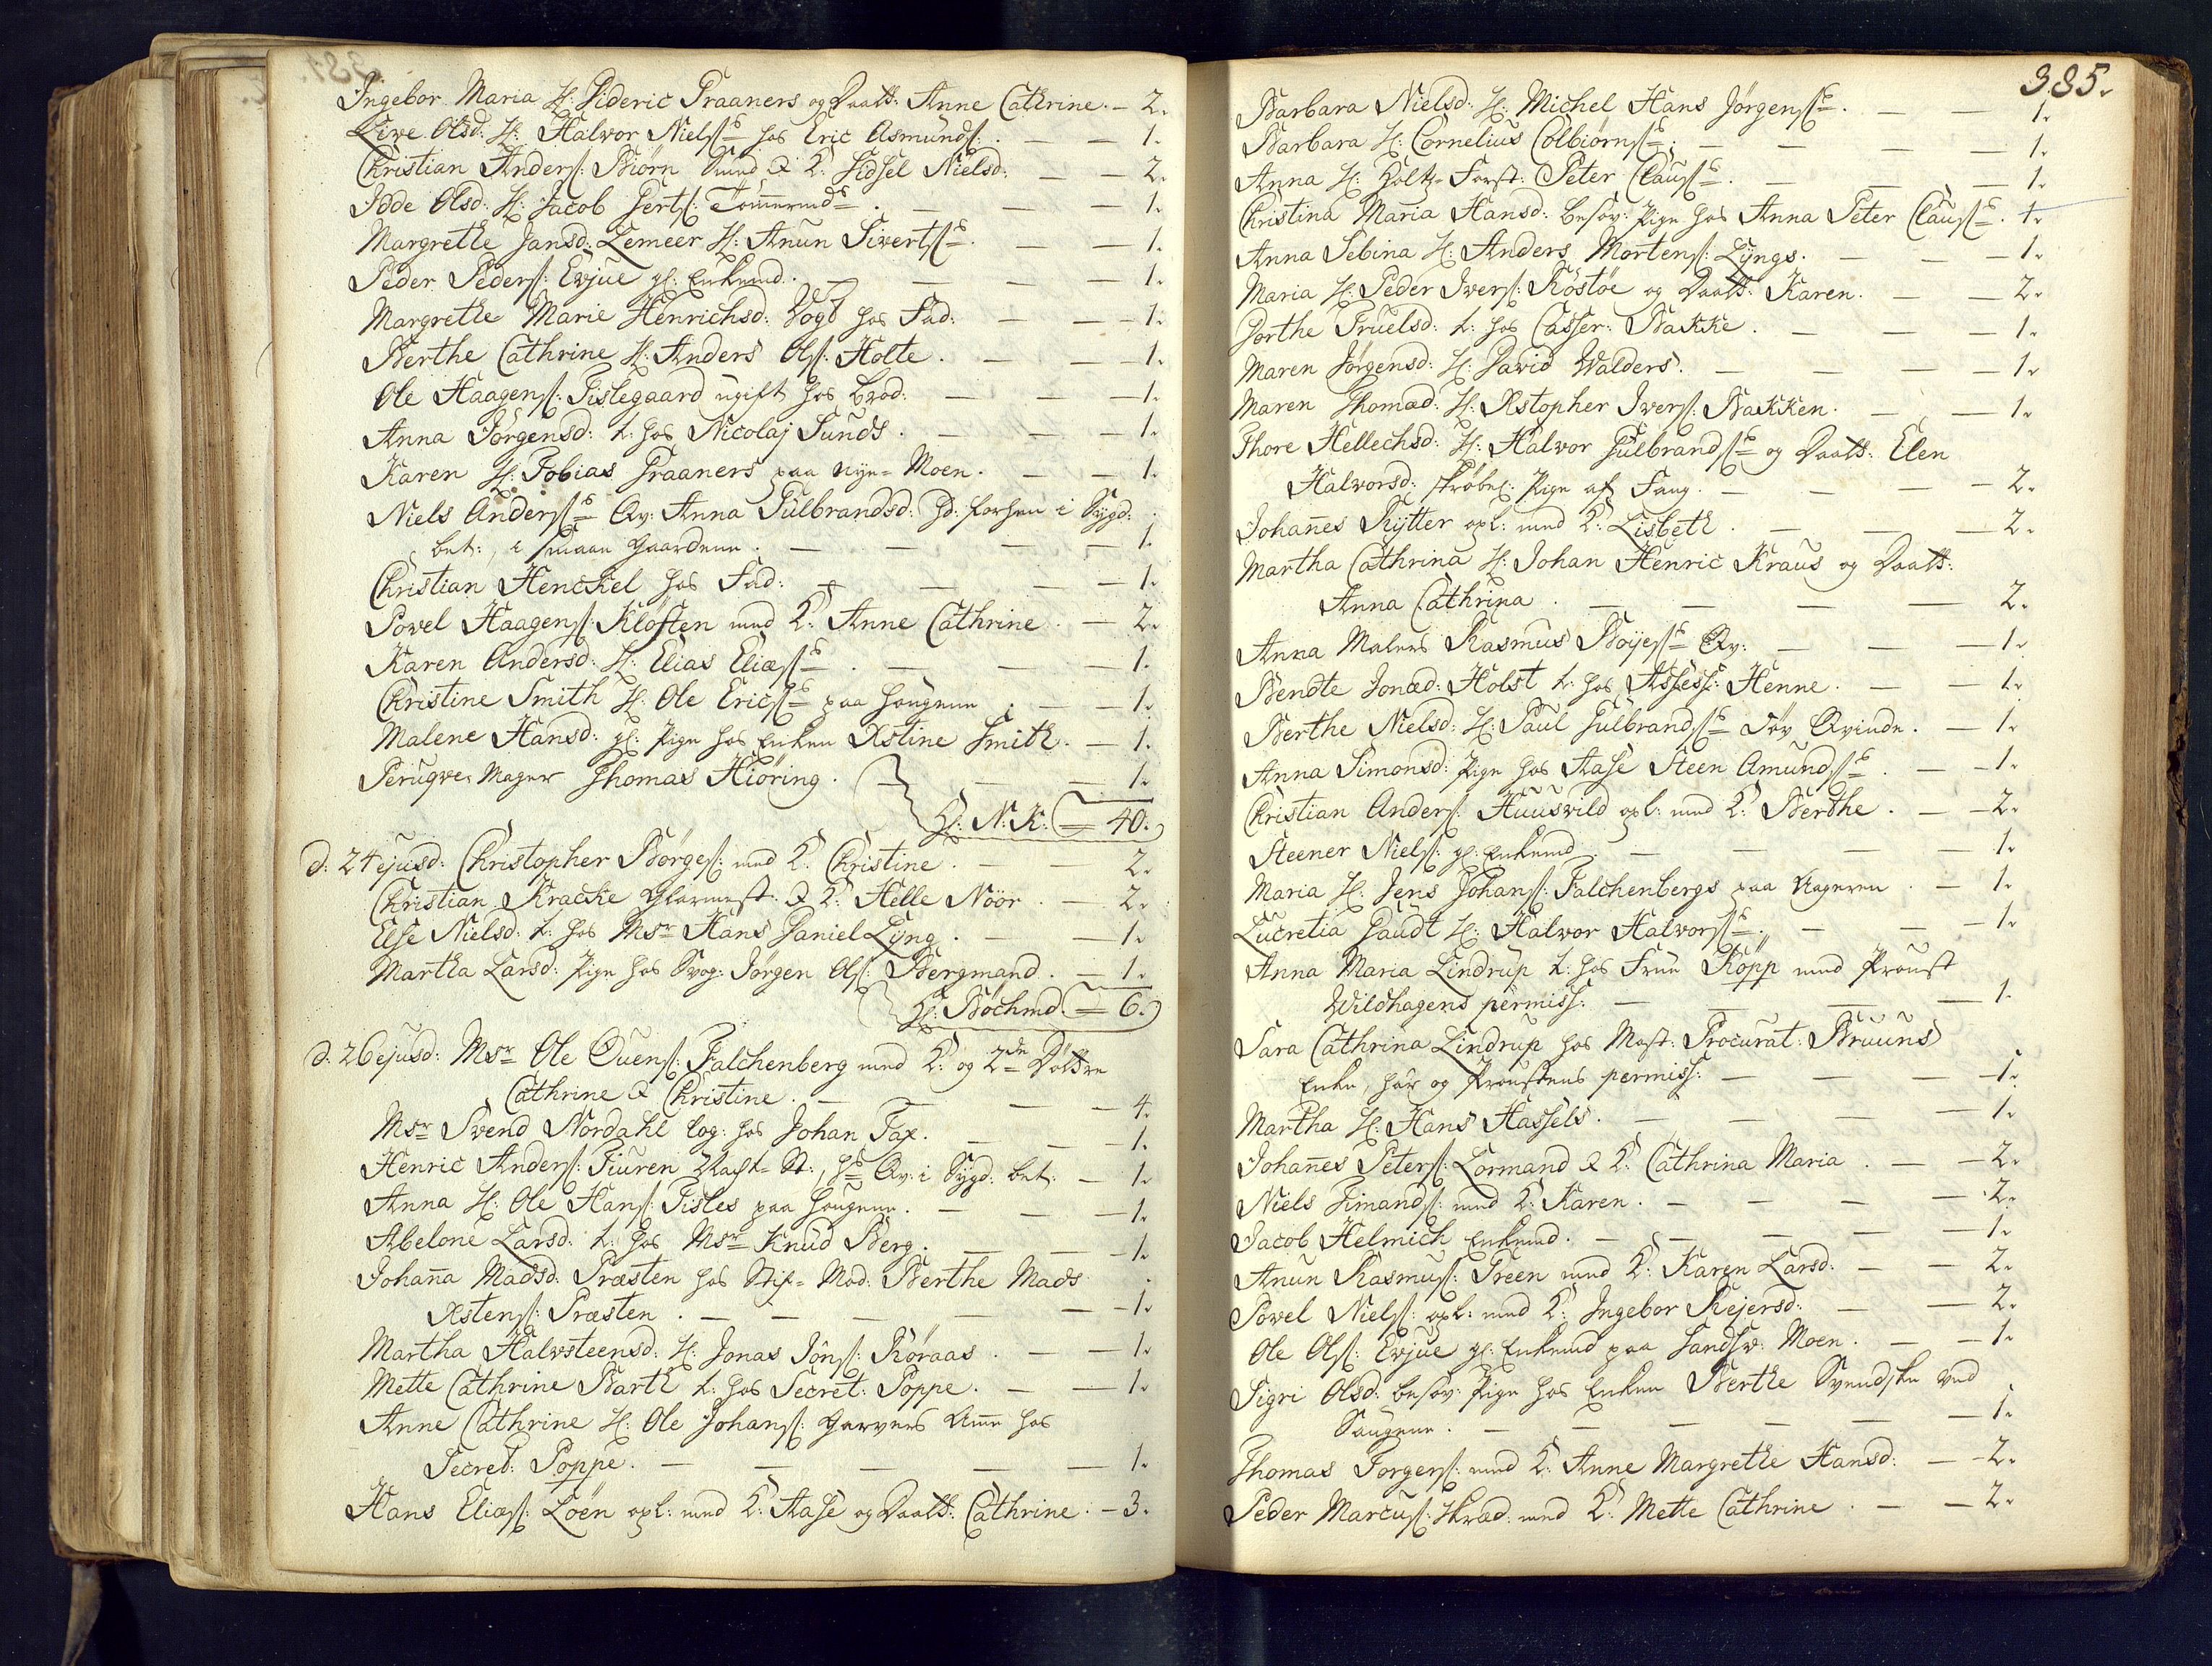 Ingebor Maria H: Dideric Graaners og Daatt: Anne Cathrine. — 2.
Live Olsd: H: Halvor Nielss: hos Eric Asmunds: — — 1.
Christian Anders: Biörn Smed & K: Sidsel Nielsd: — — 2.
Odde Olsd: H: Jacob Gerts: Tömermds. — — — 1.
Margrethe Jansd: Lemeer H: Anun Sivertss. — — 1.
Peder Peders: Evjue gl: Enkemd. — — — 1.
Margrethe Marie Henrichsd: Vogd hos Fad: — — — 1.
Berthe Cathrine H: Anders Ols: Holte. — — 1.
Ole Haagens: Tislegaard ugift hos Brod: — — — 1.
Anna Jörgensd: t: hos Nicolaj Lunds. — — — 1.
Karen H: Tobias Graaners paa Nye-Moen. — — 1.
Niels Anderss: Qv: Anna Gulbrandsd: forhen i Sygd:
bet:, i Smaae Gaardene. — — — — 1.
Christian Henckel hos Fad: — — — 1.
Povel Haagens: Klöften med K: Anne Cathrine. — 2.
Karen Andersd: H: Elias Eliæss. — — — 1.
Christine Smith H: Ole Ericss: paa Haugene. — — 1.
Malene Hansd: gl: Pige hos Enken Xstine Smith. — 1.
Peruqve-Mager Thomas Hiöring. — — 1.
H: N: K: = 40.
d: 24 ejusd: Christopher Börges: med K: Christine. — — 2.
Christian Kracke Glarmest: & K: Helle Nöör. — 2.
Else Nielsd: t: hos Msr Hans Daniel Lyng. — — 1.
Martha Larsd: Pige hos Svog: Jörgen Ols: Bergmand. — 1.
H: Böchmd. = 6.
d: 26 ejusd: Msr Ole Ouens: Falchenberg med K: og 2de Döttre
Cathrine & Christine. — — — — 4.
Msr Svend Nordahl log: hos Johan Fax. — — 1.
Henric Anders: Fiuren Vagt-St:, hs Qv: i Sygd: bet: — 1.
Anna H: Ole Hans: Tisles paa Haugene. — — — 1.
Abelone Larsd: t: hos Msr Knud Berg. — — — 1.
Johanna Madsd: Præsten hos Stif-Mod: Berthe Mads
Xstens: Præsten. — — — — — 1.
Martha Halvsteensd: H: Jonas Jöns: Röraas. — — 1.
Mette Cathrine Barth t: hos Secret: Poppe. — — 1.
Anne Cathrine H: Ole Johans: Garvers Amme hos
Secret: Poppe. — — — — — 1.
Hans Eliæs: Loen opl: med K: Aase og Daatt: Cathrine. — 3.
385.
Barbara Nielsd: H: Michel Hans Jörgenss. — — 1.
Barbara H: Cornelius Colbiörnss. — — — — 1.
Anna H: Holtz-Forst: Peter Clauss. — — — 1.
Christina Maria Hansd: besov: Pige hos Anna Peter Clauss. 1.
Anna Sebina H: Anders Mortens: Lyngs. — — — 1.
Maria H: Peder Ivers: Röstöe og Daatt: Karen. — — 2.
Dorthe Truelsd: t: hos Casser: Bakke. — — — 1.
Maren Jörgensd: H: David Walders. — — — — 1.
Maren Thomad: H: Xstopher Ivers: Bakken. — — 1.
Thore Hellechsd: H: Halvor Gulbrandss: og Daatt: Elen
Halvorsd: Pige af Fang. — — — 2.
Johannes Rytter opl: med K: Lisbeth. — — — 2.
Martha Cathrina H: Johan Henric Kraus og Daatt:
Anna Cathrina. — — — — 2.
Anna Malers Rasmus Boyess: Qv: — — — 1.
Bendte Jonæd: Holst t: hos Assess: Henne. — — 1.
Berthe Nielsd: H: Paul Gulbrandss: döv Qvinde. — 1.
Anna Simonsd: Pige hos Aase Steen Amundss. — — 1.
Christian Anders: Huusvild opl: med K: Berthe. — — 2.
Steener Niels: gl: Enkemd. — — — — 1.
Maria H: Jens Johans: Falchenbergs paa Ageren. — 1.
Lucretia Daudt H: Halvor Halvorss. — — — 1.
Anna Maria Lindrup t: hos Frue Köpp med Provst
Wildhagens permiss: — — — 1.
Sara Cathrina Lindrup hos Mast: Procurat: Bruuns
Enke, har og Provstens permiss: — — — — 1.
Martha H: Hans Hassels. — — — — 1.
Johannes Peters: Lormand & K: Cathrina Maria. — — 2.
Niels Fimands: med K: Karen. — — — — 2.
Jacob Helmich Enkemd. — — — — 1.
Anun Rasmus: Green med K: Karen Larsd: — — 2.
Povel Niels: opl: med K: Ingebor Rejersd: — — 2.
Ole Ols: Evjue gl: Enkemd paa Sandsv: Moen. — — 1.
Sigri Olsd: besov: Pige hos Enken Berthe Svendske ved
Saugene. — — — — — 1.
Thomas Torgers: med K: Anne Margrethe Hansd: — — 2.
Peder Marcus: Skræd: med K: Mette Cathrine. — — 2.